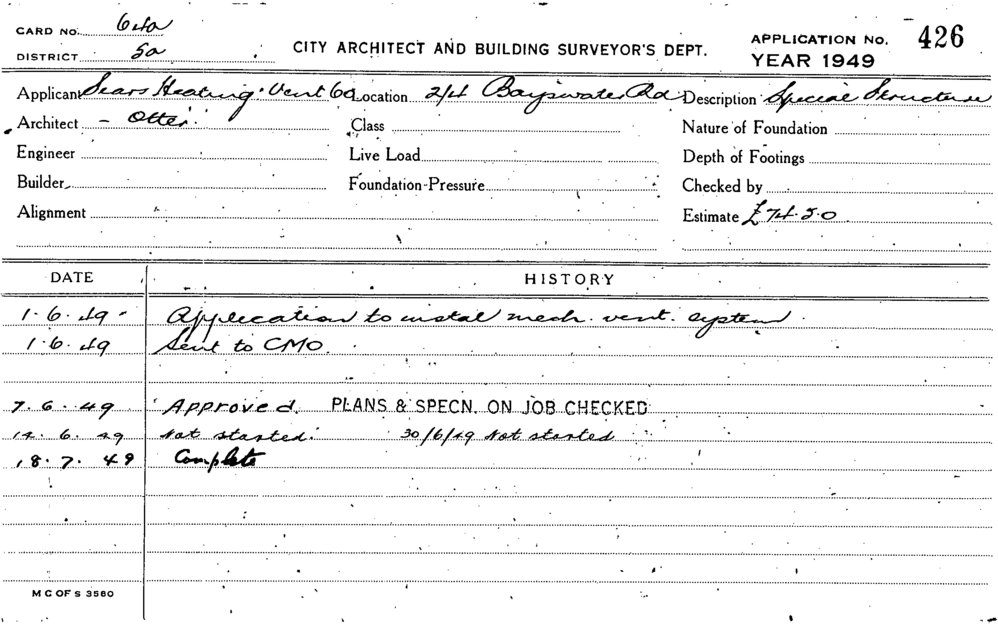 CARD NO. 64a
DISTRICT 5a
CITY ARCHITECT AND BUILDING SURVEYOR'S DEPT.
APPLICATION No. 426
YEAR 1949
Applicant Sears Heating & Vent Co Location 2/4 Bayswater Rd Description Special Structure
Architect - Otter. Class Nature of Foundation
Engineer Live Load Depth of Footings
Builder Foundation-Pressure Checked by
Alignment Estimate £74.5.0
DATE HISTORY
1.6.49 Application to instal mech. vent. system.
1.6.49 Sent to CMO.
7.6.49 Approved. PLANS & SPECN. ON JOB CHECKED
14.6.49 Not started. 30/6/49 Not started
18.7.49 Complete
M C OF S 3560